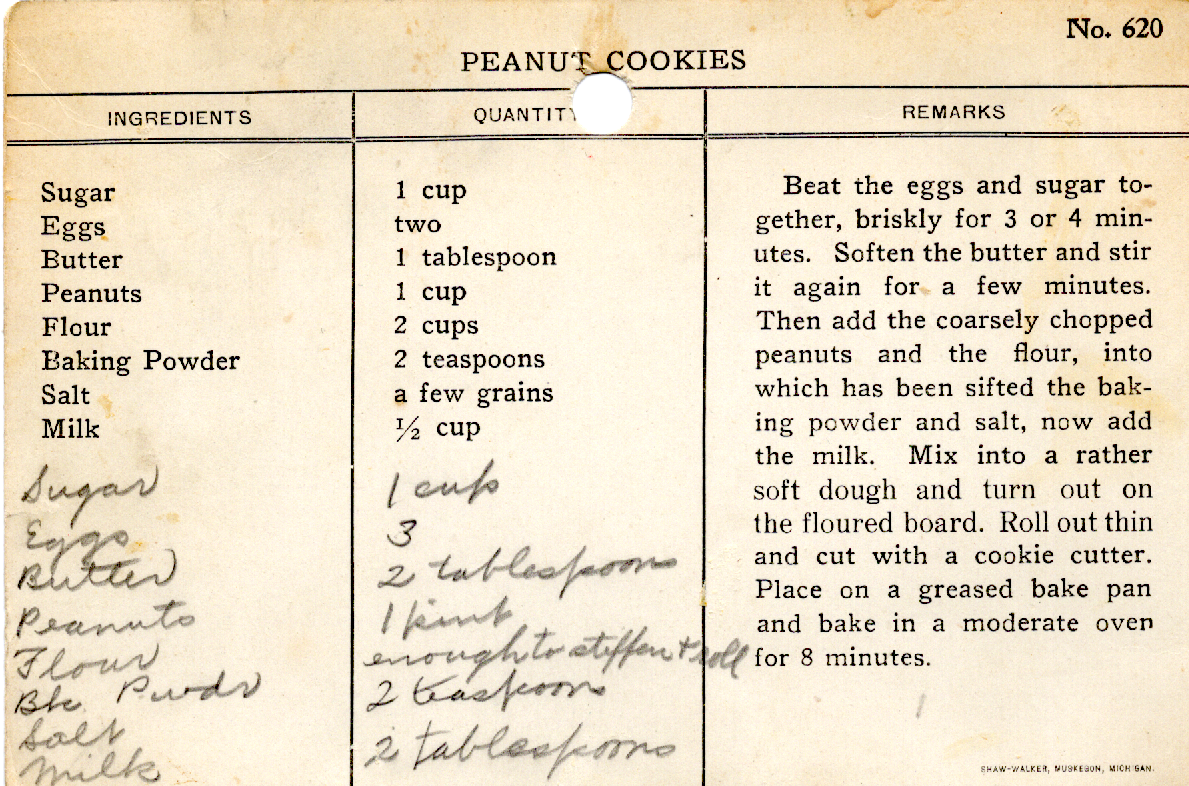 No. 620
PEANUT COOKIES
INGREDIENTS QUANTITY REMARKS
Sugar 1 cup
Eggs two
Butter 1 tablespoon
Peanuts 1 cup
Flour 2 cups
Baking Powder 2 teaspoons
Salt a few grains
Milk ½ cup
Sugar 1 cup
Eggs 3
Butter 2 tablespoons
Peanuts 1 pint
Flour enough to stiffen + roll
Bk Pwdr 2 teaspoons
Salt
Milk 2 tablespoons
Beat the eggs and sugar to-
gether, briskly for 3 or 4 min-
utes. Soften the butter and stir
it again for a few minutes.
Then add the coarsely chopped
peanuts and the flour, into
which has been sifted the bak-
ing powder and salt, now add
the milk. Mix into a rather
soft dough and turn out on
the floured board. Roll out thin
and cut with a cookie cutter.
Place on a greased bake pan
and bake in a moderate oven
for 8 minutes.
SHAW-WALKER, MUSKEGON, MICHIGAN.